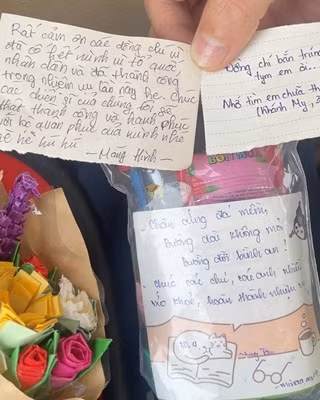 Rất cảm ơn các đồng chí vì
đã cố hết mình vì tổ quốc
nhân dân và đã thành công
trong nhiệm vụ lần này hé. Chúc
các chiến sĩ của chúng tôi sẽ
thật thành công và hạnh phúc
với bộ quân phục của mình nhé
hì hu hu
- Măng Hình -
Uống chí bắn trúng
tym em ời...
Nhớ tim em chưa
(Khánh My,
Chân cứng đá mềm,
Đường dài không mỏi
Đường đời bình an!
Chúc các chú, các anh nhiều
sức khoẻ, hoàn thành nhiệm vụ